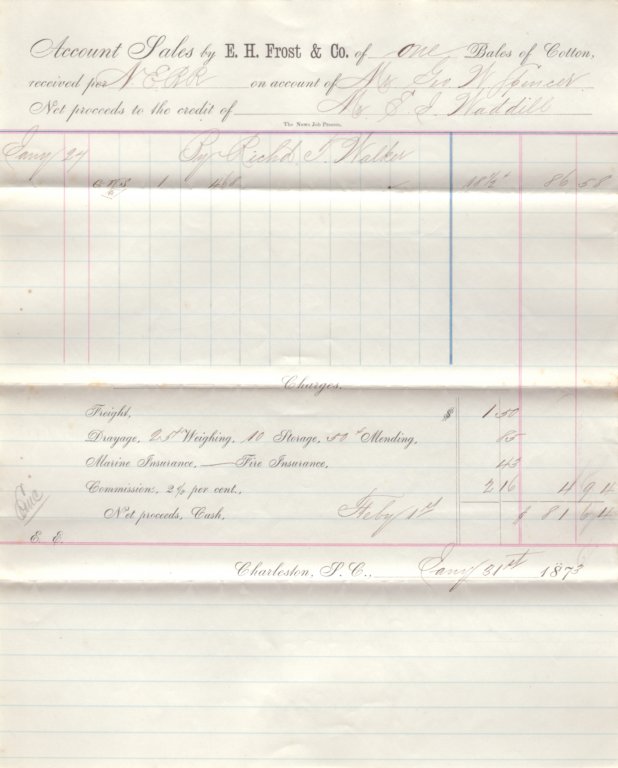 Account Sales by E. H. Frost & Co. of one Bales of Cotton,
received per N. E. R R on account of Mr Geo W. Spencer
Net proceeds to the credit of Mr E. J. Waddill
The News Job Presses.
Jany 27 By Richd. T. Walker
1 468 18½ 86 58
Charges.
Freight, $ 1 50
Drayage, 25 Weighing, 10 Storage, 50 Mending, 85
Marine Insurance, Fire Insurance, 43
Commissions, 2½ per cent., 2 16 4 94
Net proceeds, Cash, Feby 1st $ 81 64
E. E.
Charleston, S. C., Jany 31st 1873